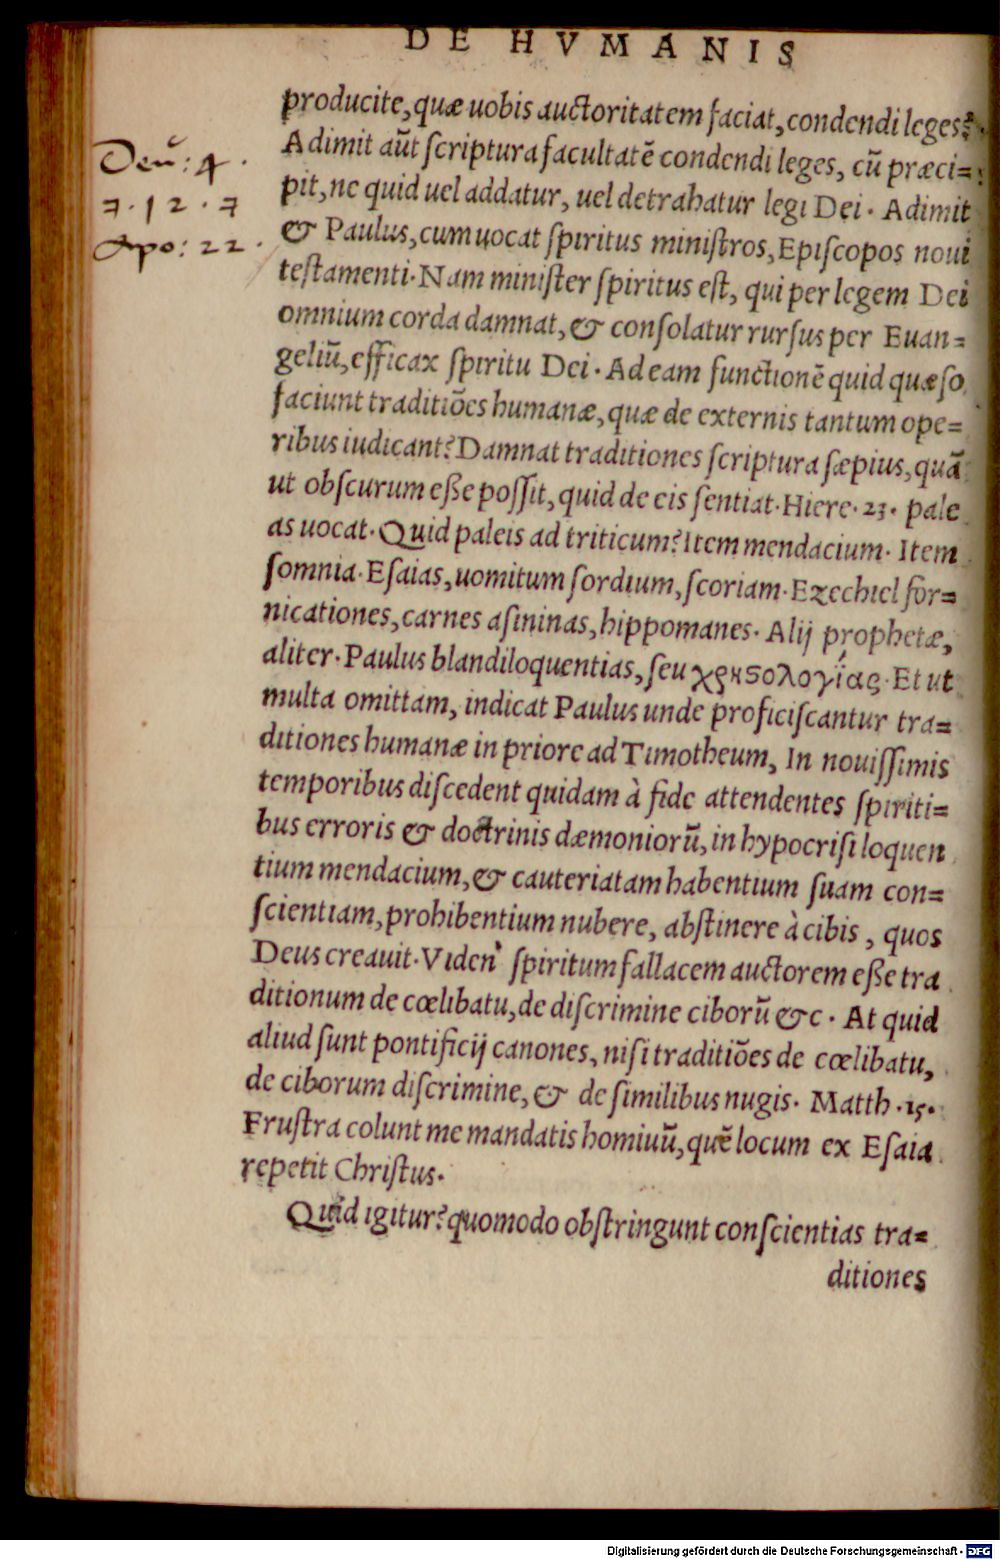 DE HVMANIS
producite, quæ uobis auctoritatem faciat, condendi leges?
Adimit aũt ſcriptura facultatẽ condendi leges, cũ præci=
pit, ne quid uel addatur, uel detrahatur legi Dei. Adimit
& Paulus, cum uocat ſpiritus miniſtros, Epiſcopos noui
teſtamenti. Nam miniſter ſpiritus eſt, qui per legem Dei
omnium corda damnat, & conſolatur rurſus per Euan=
geliũ, efficax ſpiritu Dei. Ad eam functionẽ quid quæſo
faciunt traditiões humanæ, quæ de externis tantum ope=
ribus iudicant? Damnat traditiones ſcriptura ſæpius, quã
ut obſcurum eße poſſit, quid de eis ſentiat. Hiere. 23. pale
as uocat. Quid paleis ad triticum? Item mendacium. Item
ſomnia. Eſaias, uomitum ſordium, ſcoriam. Ezechiel for=
nicationes, carnes aſininas, hippomanes. Alij prophetæ,
aliter. Paulus blandiloquentias, ſeu χρηστολογίας. Et ut
multa omittam, indicat Paulus unde proficiſcantur tra=
ditiones humanæ in priore ad Timotheum, In nouiſſimis
temporibus diſcedent quidam à fide attendentes ſpiriti=
bus erroris & doctrinis dæmoniorũ, in hypocriſi loquen
tium mendacium, & cauteriatam habentium ſuam con=
ſcientiam, prohibentium nubere, abſtinere à cibis, quos
Deus creauit. Viden' ſpiritum fallacem auctorem eße tra
ditionum de cœlibatu, de diſcrimine ciborũ &c. At quid
aliud ſunt pontificij canones, niſi traditiões de cœlibatu,
de ciborum diſcrimine, & de ſimilibus nugis. Matth. 15.
Fruſtra colunt me mandatis homiuũ, quẽ locum ex Eſaia
repetit Chriſtus.
Quid igitur? quomodo obſtringunt conſcientias tra=
ditiones
Deũ: 4.
7. 12. 7
Apo: 22.
Digitalisierung gefördert durch die Deutsche Forschungsgemeinschaft - DFG